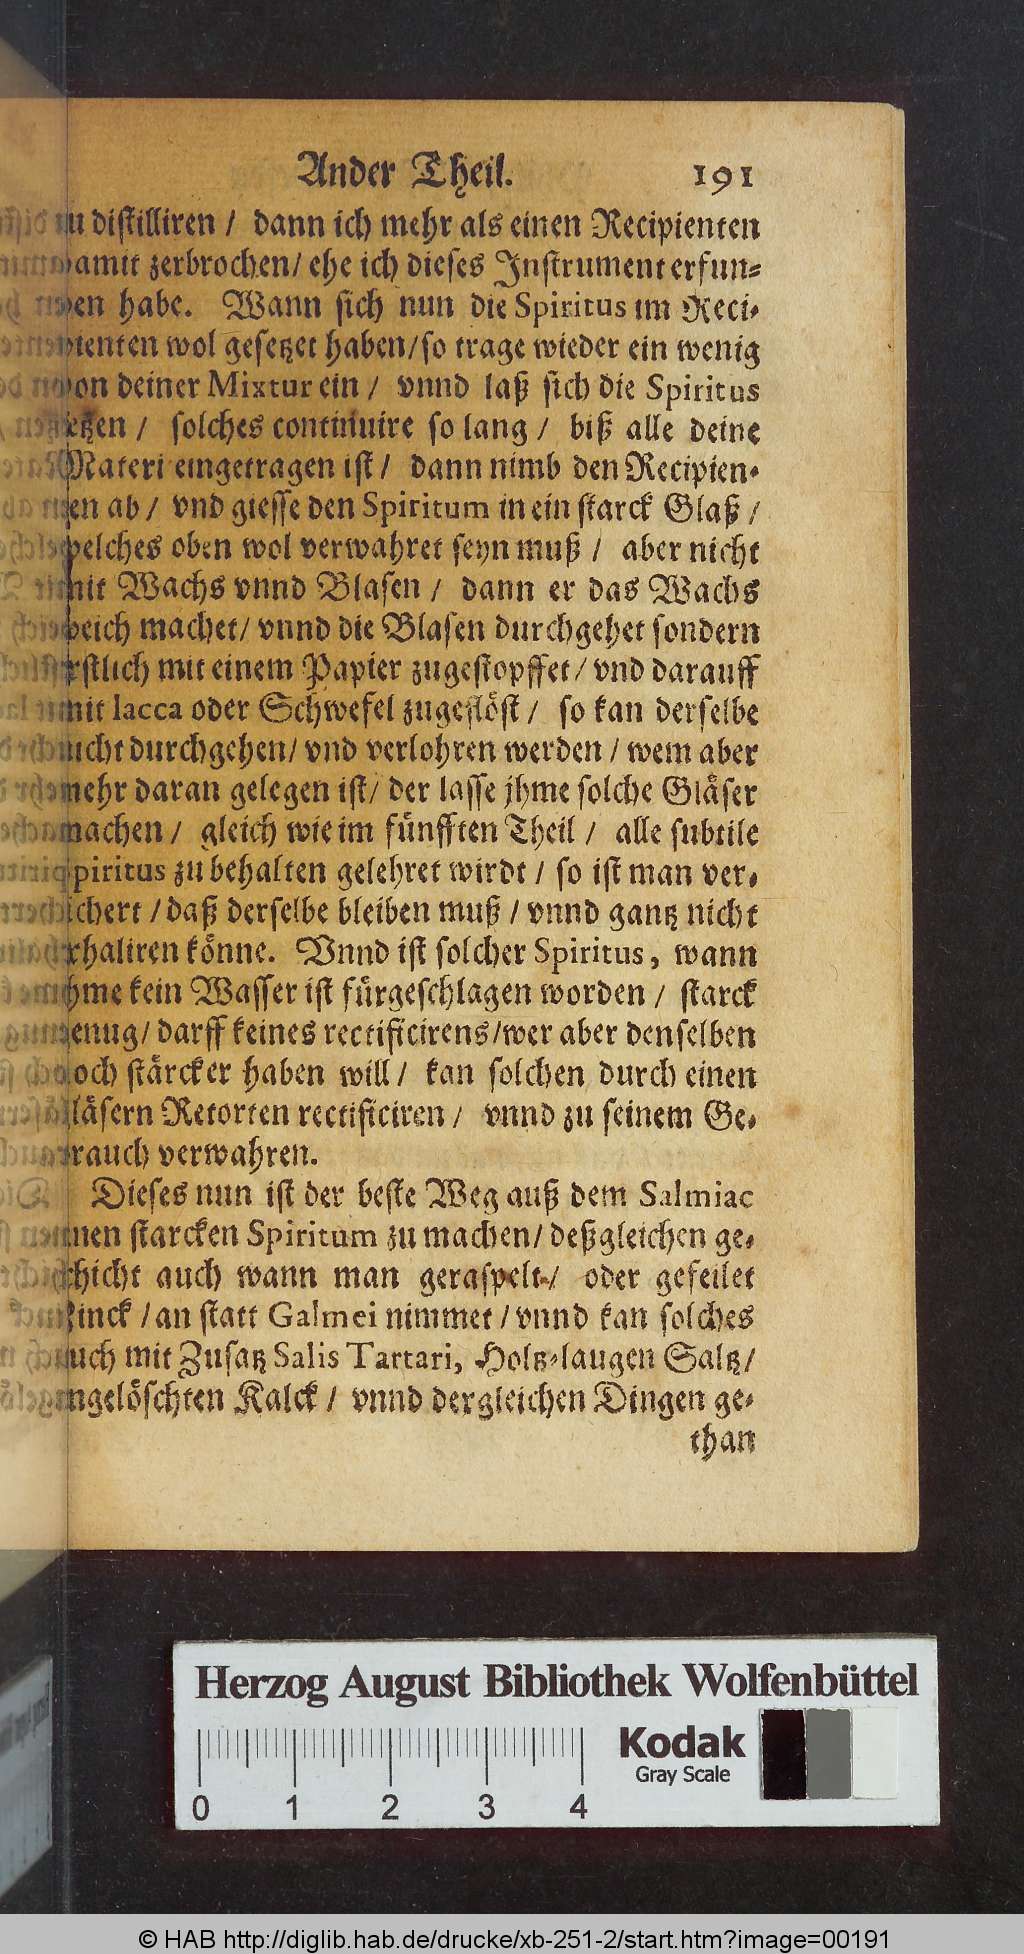 Ander Theil. 191
zu distilliren / dann ich mehr als einen Recipienten
damit zerbrochen/ ehe ich dieses Instrument erfun⸗
den habe. Wann sich nun die Spiritus im Reci⸗
pienten wol gesetzet haben/so trage wieder ein wenig
von deiner Mixtur ein / vnnd laß sich die Spiritus
setzen / solches continuire so lang / biß alle deine
Materi eingetragen ist / dann nimb den Recipien⸗
ten ab / vnd giesse den Spiritum in ein starck Glaß /
welches oben wol verwahret seyn muß / aber nicht
mit Wachs vnnd Blasen / dann er das Wachs
weich machet/ vnnd die Blasen durchgehet sondern
erstlich mit einem Papier zugestopffet / vnd darauff
mit lacca oder Schwefel zugeflöst / so kan derselbe
nicht durchgehen/ vnd verlohren werden / wem aber
mehr daran gelegen ist/ der lasse jhme solche Gläser
machen / gleich wie im fünfften Theil / alle subtile
Spiritus zu behalten gelehret wirdt / so ist man ver⸗
sichert / daß derselbe bleiben muß / vnnd gantz nicht
exhaliren könne. Vnnd ist solcher Spiritus, wann
jhme kein Wasser ist fürgeschlagen worden / starck
genug/ darff keines rectificirens/wer aber denselben
noch stärcker haben will / kan solchen durch einen
gläsern Retorten rectificiren / vnnd zu seinem Ge⸗
brauch verwahren.
Dieses nun ist der beste Weg auß dem Salmiac
einen starcken Spiritum zu machen/ deßgleichen ge⸗
schicht auch wann man geraspelt / oder gefeilet
Zinck / an statt Galmei nimmet / vnnd kan solches
auch mit Zusatz Salis Tartari, Holtz⸗laugen Saltz /
vngelöschten Kalck / vnnd dergleichen Dingen ge⸗
than
Herzog August Bibliothek Wolfenbüttel
Kodak
Gray Scale
0 1 2 3 4
© HAB http://diglib.hab.de/drucke/xb-251-2/start.htm?image=00191